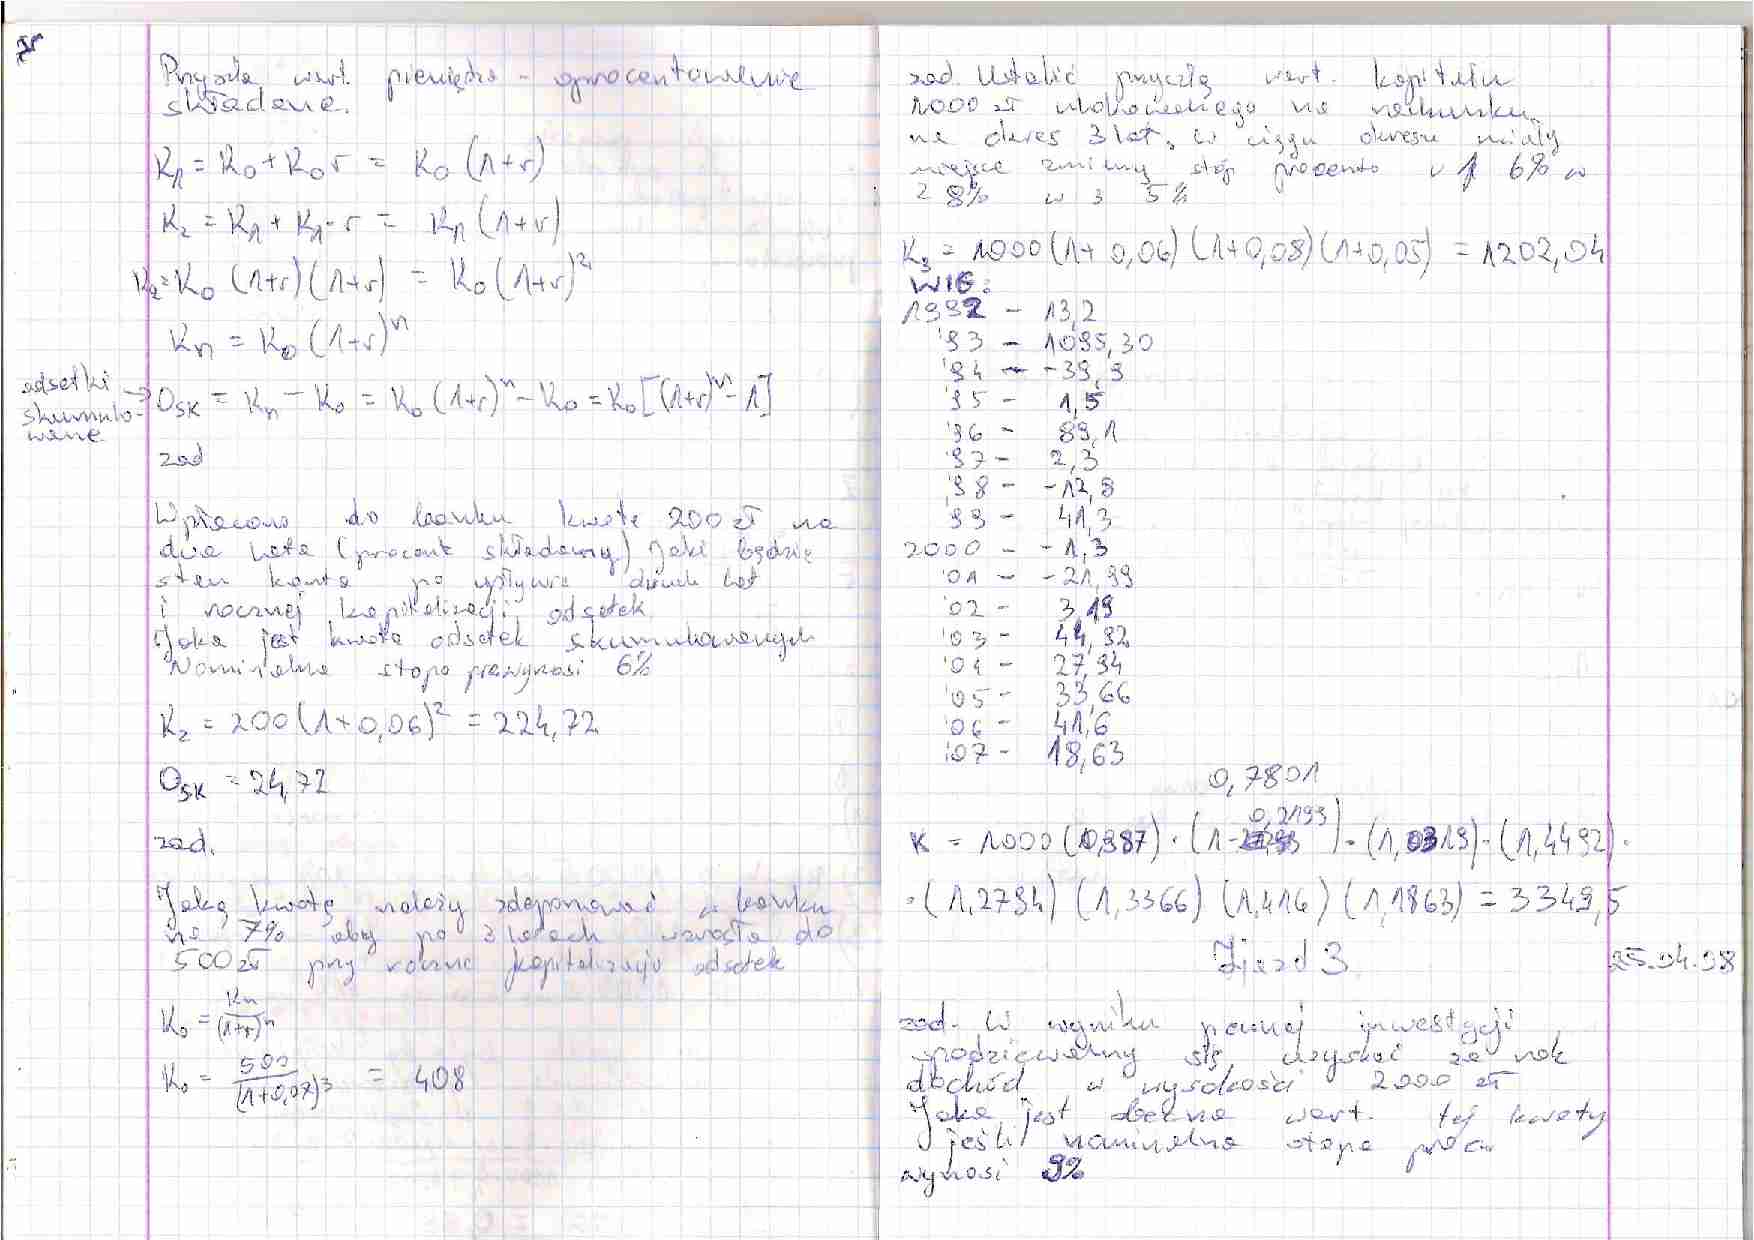 Przyszła wart. pieniądza - oprocentowanie
składane.
K₁ = K₀ + K₀ r = K₀ (1+r)
K₂ = K₁ + K₁·r = K₁ (1+r)
K₂ = K₀ (1+r)(1+r) = K₀ (1+r)²
Kn = K₀ (1+r)ⁿ
odsetki
skumulo-
wane
→ OSK = Kn - K₀ = K₀ (1+r)ⁿ - K₀ = K₀ [(1+r)ⁿ - 1]
zad
Wpłacono do banku kwotę 200 zł na
dwa lata (procent składany) Jaki będzie
stan konta po upływie dwóch lat
i rocznej kapitalizacji odsetek
Jaka jest kwota odsetek skumulowanych
Nominalna stopa pr. wynosi 6%
K₂ = 200 (1+0,06)² = 224,72
OSK = 24,72
zad.
Jaką kwotę należy zdeponować w banku
na 7% aby po 3 latach wzrosła do
500 zł przy roczne kapitalizacji odsetek
K₀ = Kn/(1+r)ⁿ
K₀ = 500/(1+0,07)³ = 408
zad. Ustalić przyszłą wart. kapitału
1000 zł ulokowanego na rachunku
na okres 3 lat, w ciągu okresu miały
miejsce zmiany stóp procento w 1 6% w
2 8% w 3 5%
K₃ = 1000 (1+0,06) (1+0,08) (1+0,05) = 1202,04
WIG:
1992 - 13,2
'93 - 1095,30
'94 - -39,9
'95 - 1,5
'96 - 89,1
'97 - 2,3
'98 - -12,8
'99 - 41,3
2000 - -1,3
'01 - -21,99
'02 - 3,19
'03 - 44,92
'04 - 27,94
'05 - 33,66
'06 - 41,6
'07 - 18,63
0,7801
0,2199
K = 1000 (0,987) · (1- ) · (1,0319) · (1,4492) ·
· (1,2794) (1,3366) (1,416) (1,1863) = 3349,5
Zjazd 3. 25.04.98
zad. W wyniku pewnej inwestycji
spodziewamy się uzyskać za rok
dochód w wysokości 2000 zł
Jaka jest obecna wart. tej kwoty
jeśli nominalna stopa proc.
wynosi 9%